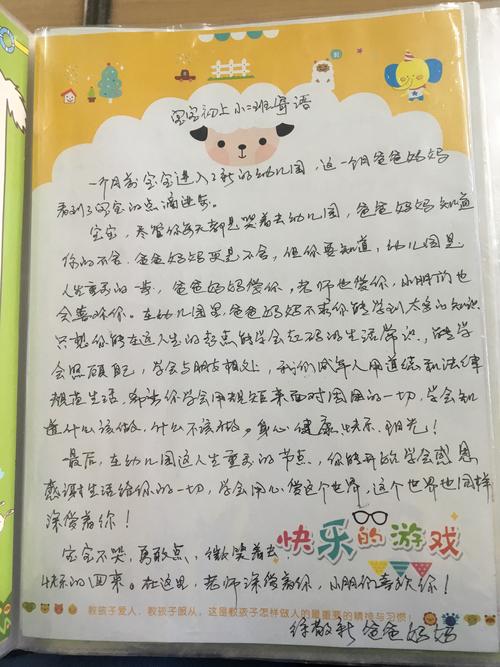 宝宝初上小二班寄语
一个月前宝宝进入了新的幼儿园，这一个月爸爸妈妈
看到了宝宝的点滴进步。
宝宝，尽管你每天都是哭着去幼儿园，爸爸妈妈知道
你的不舍，爸爸妈妈更是不舍，但你要知道，幼儿园是
人生重要的一步，爸爸妈妈爱你，老师也爱你，小朋友们也
会喜欢你。在幼儿园里，爸爸妈妈不求你能学到太多的知识
只想你能在这人生的起点能学会起码的生活常识，能学
会照顾自己，学会与朋友相处，我们成年人用道德和法律
规范生活，那么你学会用规矩来面对周围的一切，学会知
道什么该做，什么不该做。身心健康、快乐、阳光！
最后，在幼儿园这人生重要的节点，你能开始学会感恩
感谢生活给你的一切，学会用心爱这个世界，这个世界也同样
深爱着你！
宝宝不哭，勇敢点，微笑着去
快乐的回来。在这里，老师深爱着你，小朋友喜欢你！
快乐的游戏
教孩子爱人、教孩子服从，这是教孩子怎样做人的最重要的精神与习惯！
爸爸妈妈